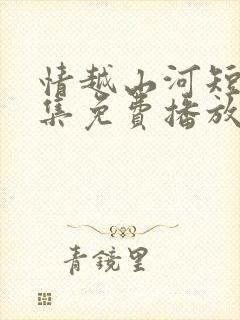 情越山河短
集免費播放
青鏡里